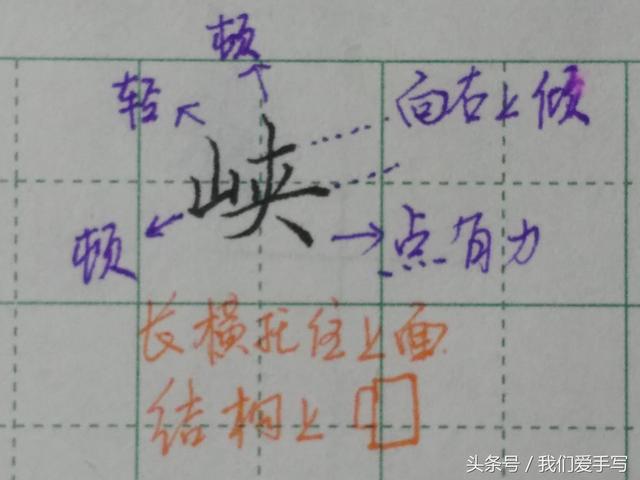 顿
轻
向右上倾
峡
顿
点有力
长横托住上面
结构上
头条号／我们爱手写